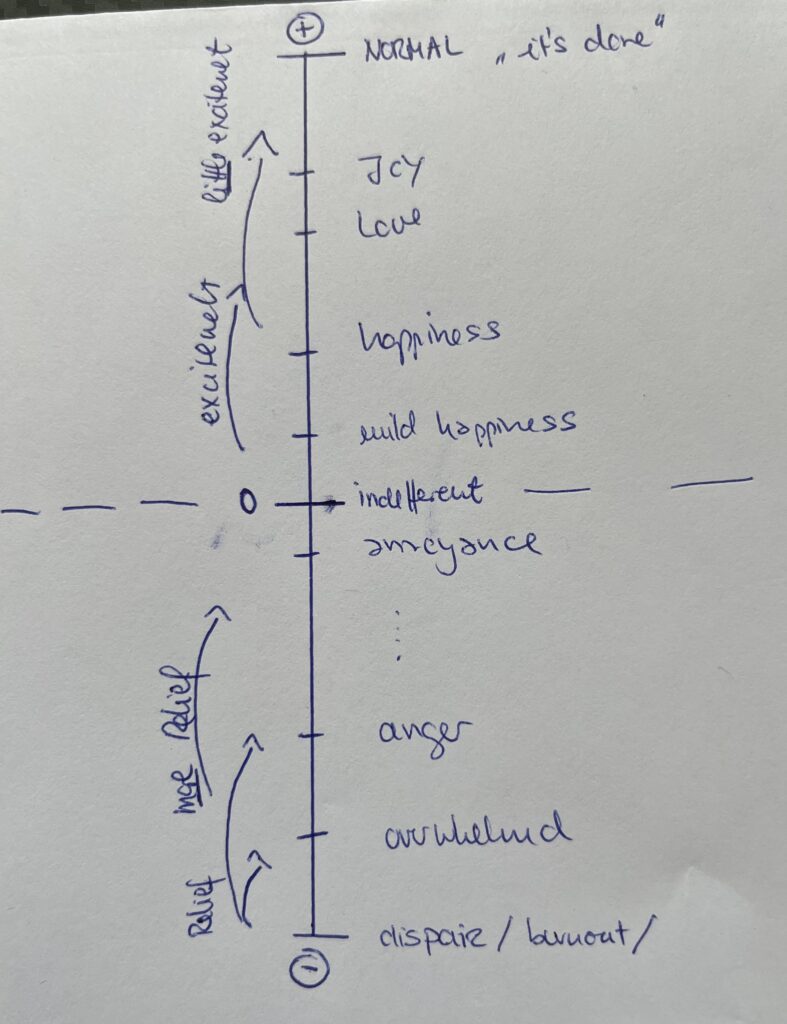 +
NORMAL „it's done"
little excitement
Joy
Love
excitement
happiness
mild happiness
0 indifferent
annoyance
more Relief
anger
overwhelmed
Relief
dispair / burnout /
-